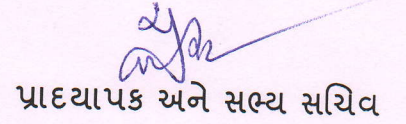 પ્રાદયાપક અને સભ્ય સચિવ